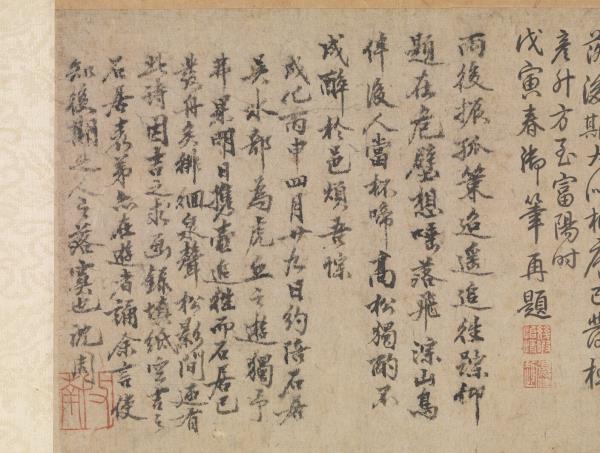 彥升方至富陽時
戊寅春御筆再題
雨後振孤策迢遙追往蹤仰
題在危壁想唾落飛淙山鳥
後人當杯啼高松獨酌不
成醉於邑煩吾悰
成化丙申四月廿九日約陪石居
吳水部為虎丘之遊獨予
弗果明日攜壺追往而石居已
發舟矣徘徊泉聲松影間還有
此詩因書之求畫錄填紙空書之
石居表弟亦在遊者誦余言使
知後期之人之落寞也沈周